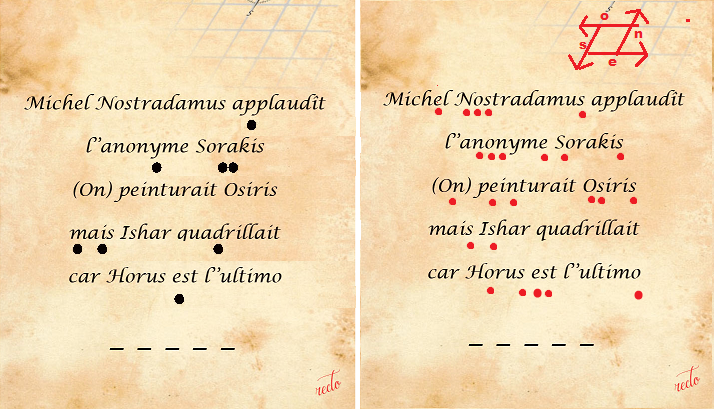 Michel Nostradamus applaudit
l''anonyme Sorakis
(On) peinturait Osiris
mais Ishar quadrillait
car Horus est l''ultimo
_ _ _ _ _
recto
o
n
s
e
Michel Nostradamus applaudit
l''anonyme Sorakis
(On) peinturait Osiris
mais Ishar quadrillait
car Horus est l''ultimo
_ _ _ _ _
recto